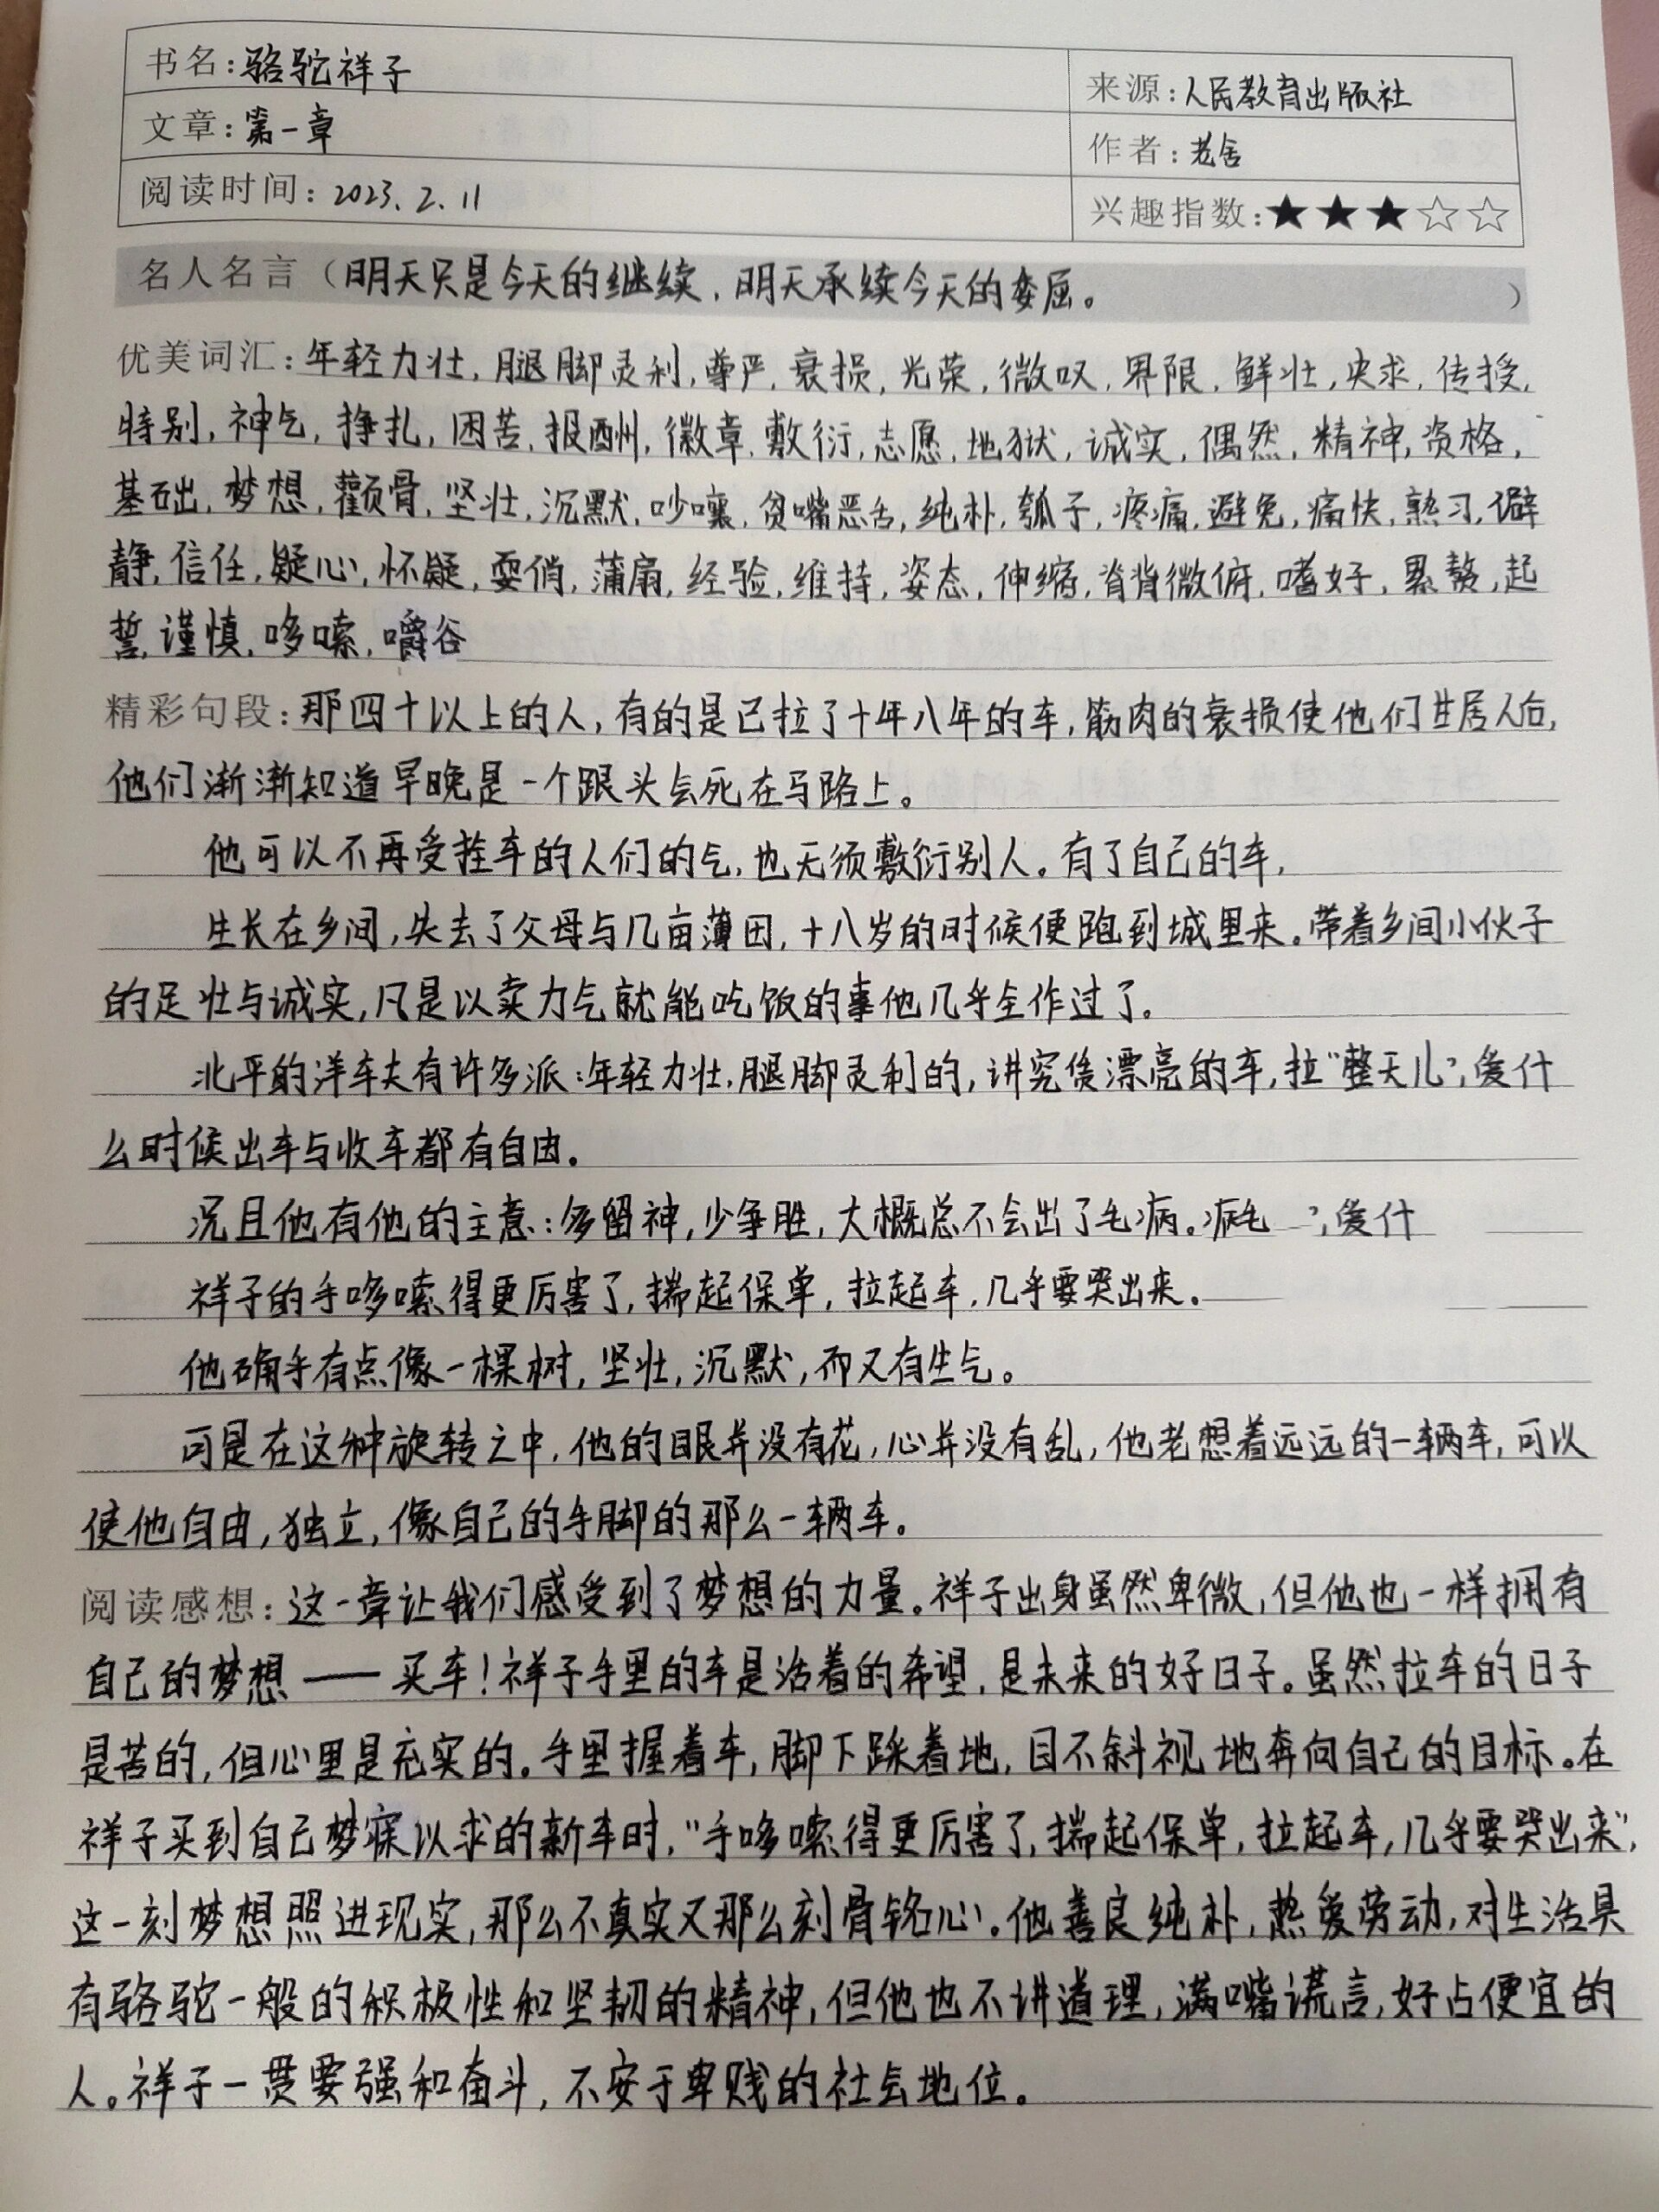 书名:骆驼祥子
来源:人民教育出版社
文章:第一章
作者:老舍
阅读时间:2023.2.11
兴趣指数:★★★☆☆
名人名言(明天只是今天的继续,明天承续今天的委屈。)
优美词汇:年轻力壮,腿脚灵利,尊严,衰损,光荣,微叹,界限,鲜壮,央求,传授,
特别,神气,挣扎,困苦,报酬,徽章,敷衍,志愿,地狱,诚实,偶然,精神,资格,
基础,梦想,颧骨,坚壮,沉默,吵嚷,贫嘴恶舌,纯朴,瓠子,疼痛,避免,痛快,熟习,僻
静,信任,疑心,怀疑,耍俏,蒲扇,经验,维持,姿态,伸缩,脊背微俯,嗜好,累赘,起
誓,谨慎,哆嗦,嚼谷
精彩句段:那四十以上的人,有的是已拉了十年八年的车,筋肉的衰损使他们甘居人后,
他们渐渐知道早晚是一个跟头会死在马路上。
他可以不再受拴车的人们的气,也无须敷衍别人。有了自己的车,
生长在乡间,失去了父母与几亩薄田,十八岁的时候便跑到城里来。带着乡间小伙子
的足壮与诚实,凡是以卖力气就能吃饭的事他几乎全作过了。
北平的洋车夫有许多派:年轻力壮,腿脚灵利的,讲究赁漂亮的车,拉“整天儿”,爱什
么时候出车与收车都有自由。
况且他有他的主意:多留神,少争胜,大概总不会出了毛病。病毛 ”,爱什
祥子的手哆嗦得更厉害了,揣起保单,拉起车,几乎要哭出来。
他确乎有点像一棵树,坚壮,沉默,而又有生气。
可是在这种旋转之中,他的眼并没有花,心并没有乱,他老想着远远的一辆车,可以
使他自由,独立,像自己的手脚的那么一辆车。
阅读感想:这一章让我们感受到了梦想的力量。祥子出身虽然卑微,但他也一样拥有
自己的梦想——买车!祥子手里的车是活着的希望,是未来的好日子。虽然拉车的日子
是苦的,但心里是充实的。手里握着车,脚下踩着地,目不斜视地奔向自己的目标。在
祥子买到自己梦寐以求的新车时,“手哆嗦得更厉害了,揣起保单,拉起车,几乎要哭出来”,
这一刻梦想照进现实,那么不真实又那么刻骨铭心。他善良纯朴,热爱劳动,对生活具
有骆驼一般的积极性和坚韧的精神,但他也不讲道理,满嘴谎言,好占便宜的
人。祥子一贯要强和奋斗,不安于卑贱的社会地位。